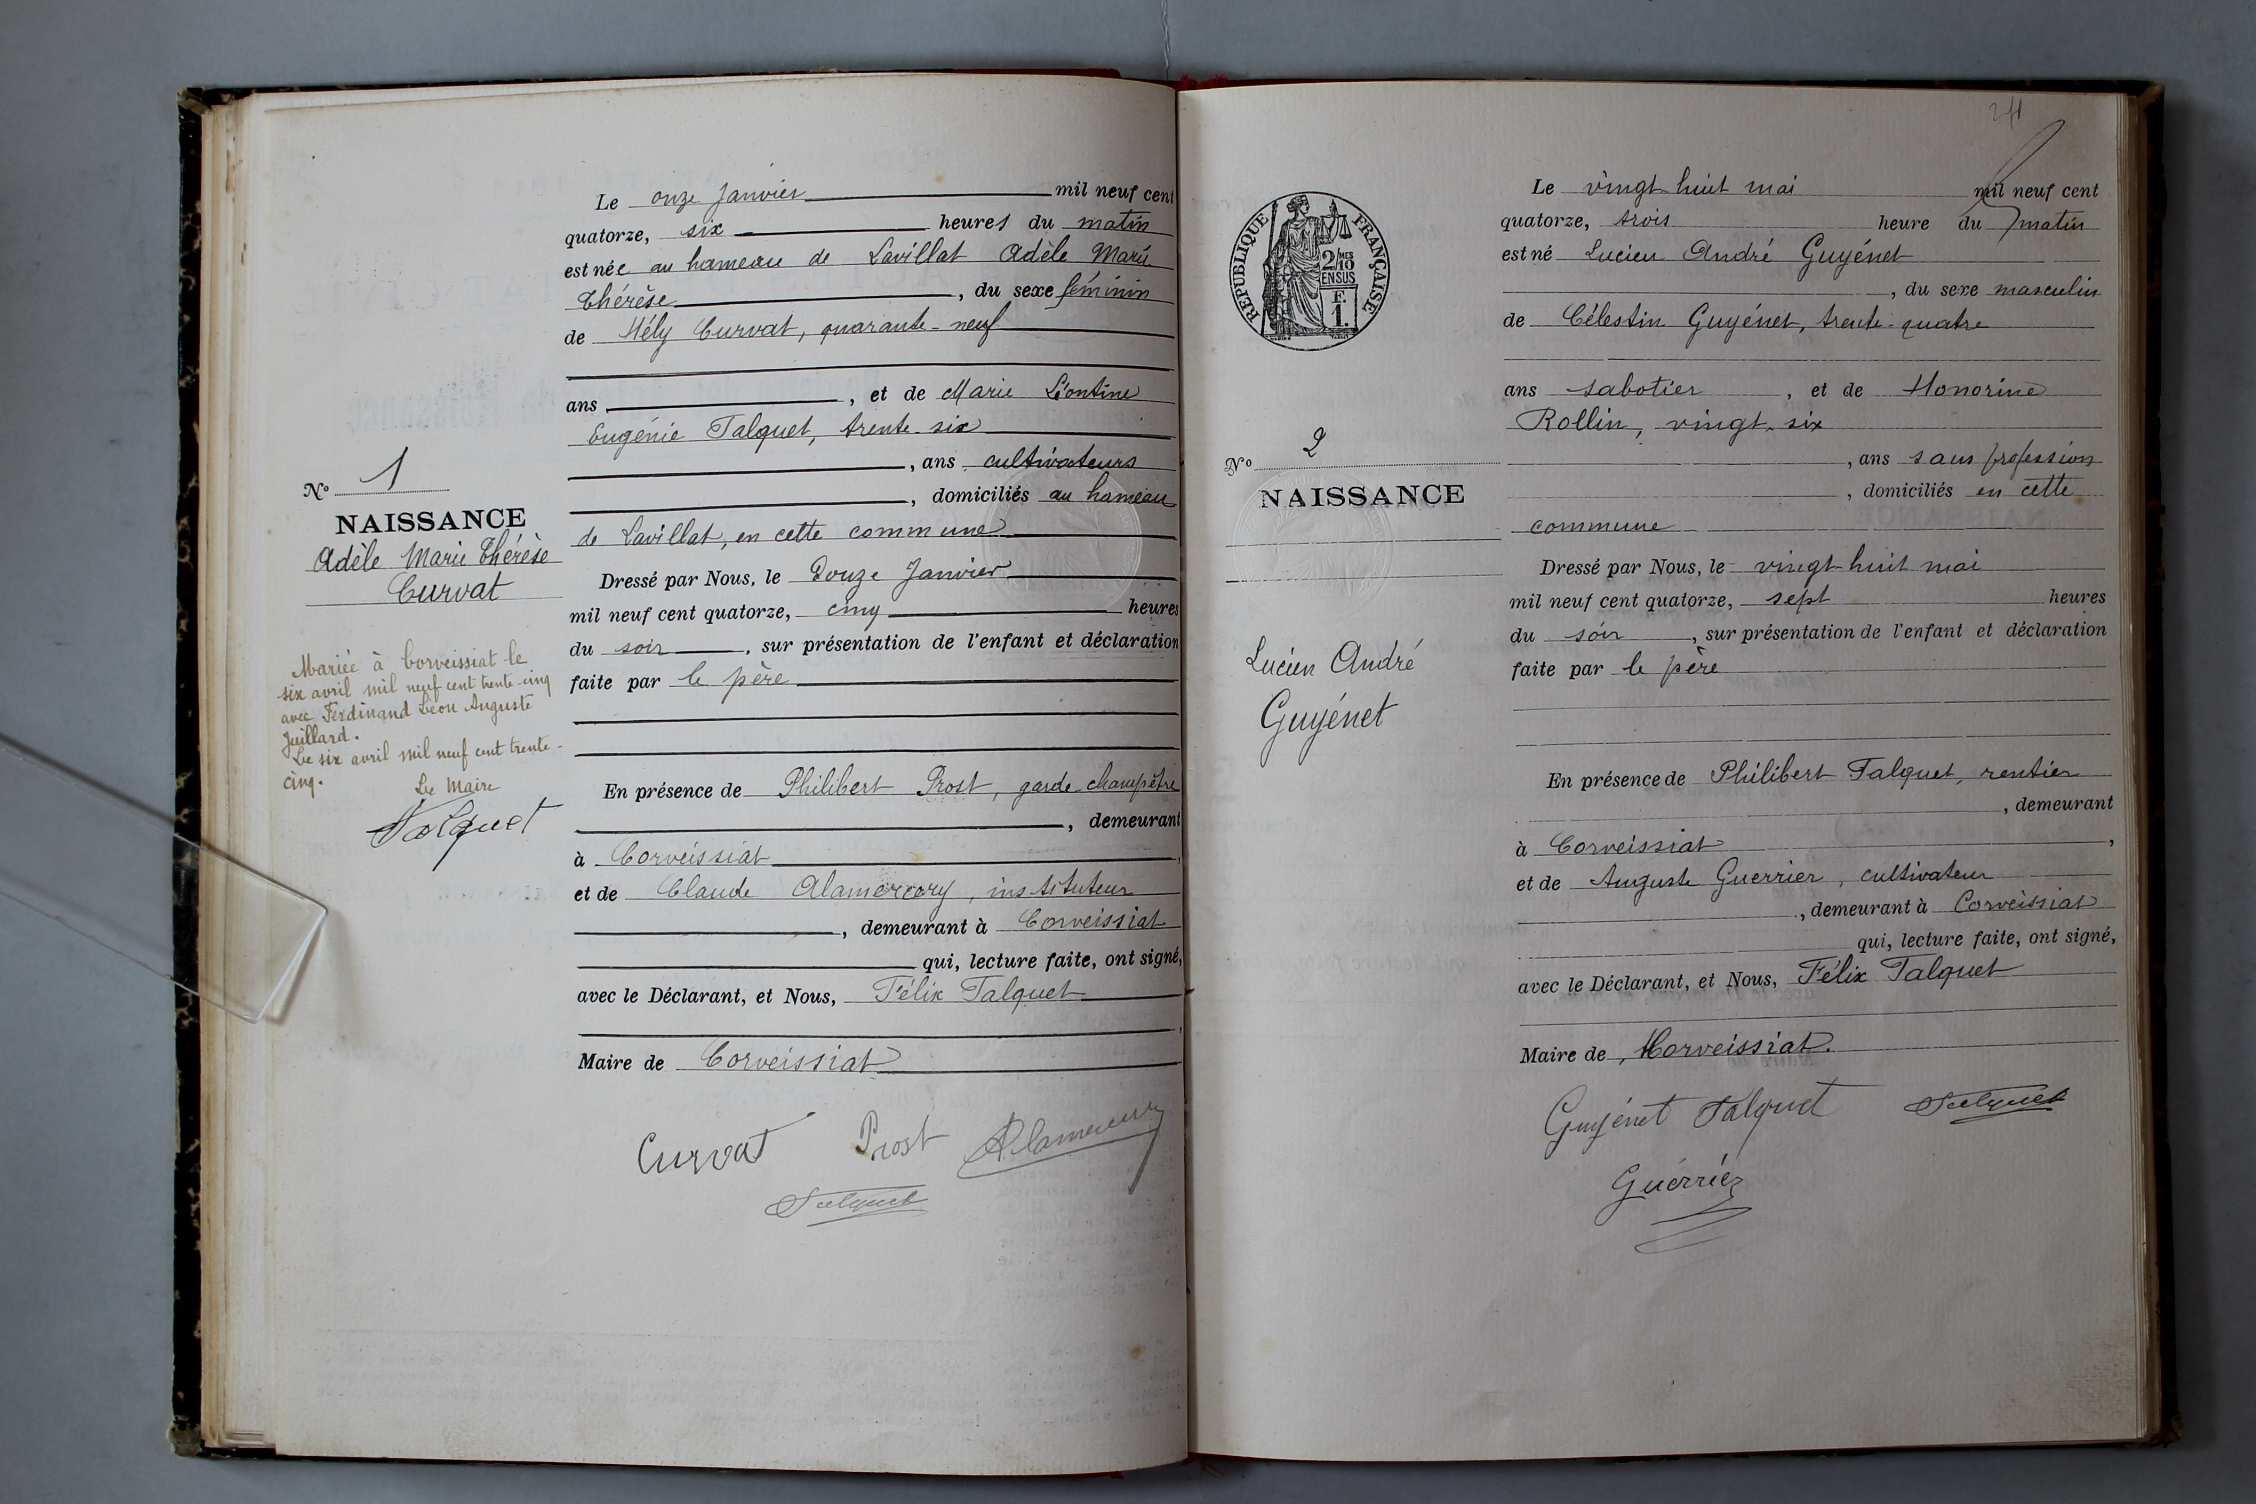 Le onze Janvier mil neuf cent
quatorze, six heures du matin
est née au hameau de Lavillat Adèle Marie
Thérèse, du sexe féminin
de Hély Curvat, quarante-neuf
ans, et de Marie Léontine
Eugénie Talquet, trente-six
, ans cultivateurs
, domiciliés au hameau
de Lavillat, en cette commune
Dressé par Nous, le Douze Janvier
mil neuf cent quatorze, cinq heures
du soir, sur présentation de l'enfant et déclaration
faite par le père
En présence de Philibert Prost, garde champêtre
, demeurant
à Corveissiat,
et de Claude Alamercery, instituteur
, demeurant à Corveissiat
qui, lecture faite, ont signé,
avec le Déclarant, et Nous, Félix Talquet
,
Maire de Corveissiat
Curvat Prost Alamercery
Talquet
No 1
NAISSANCE
Adèle Marie Thérèse
Curvat
Mariée à Corveissiat le
six avril mil neuf cent trente-cinq
avec Ferdinand Léon Auguste
Juillard.
Le six avril mil neuf cent trente-
cinq.
Le Maire
Talquet
24
REPUBLIQUE FRANÇAISE
2 MES
10
EN SUS
F.
1.
No 2
NAISSANCE
Lucien André
Guyénet
Le vingt-huit mai mil neuf cent
quatorze, trois heure du matin
est né Lucien André Guyénet
, du sexe masculin
de Célestin Guyénet, trente-quatre
ans sabotier, et de Honorine
Rollin, vingt-six
, ans sans profession
, domiciliés en cette
commune
Dressé par Nous, le vingt-huit mai
mil neuf cent quatorze, sept heures
du soir, sur présentation de l'enfant et déclaration
faite par le père
En présence de Philibert Talquet, rentier
, demeurant
à Corveissiat,
et de Auguste Guerrier, cultivateur
, demeurant à Corveissiat
qui, lecture faite, ont signé,
avec le Déclarant, et Nous, Félix Talquet
Maire de Corveissiat.
Guyénet Talquet Talquet
Guérrier